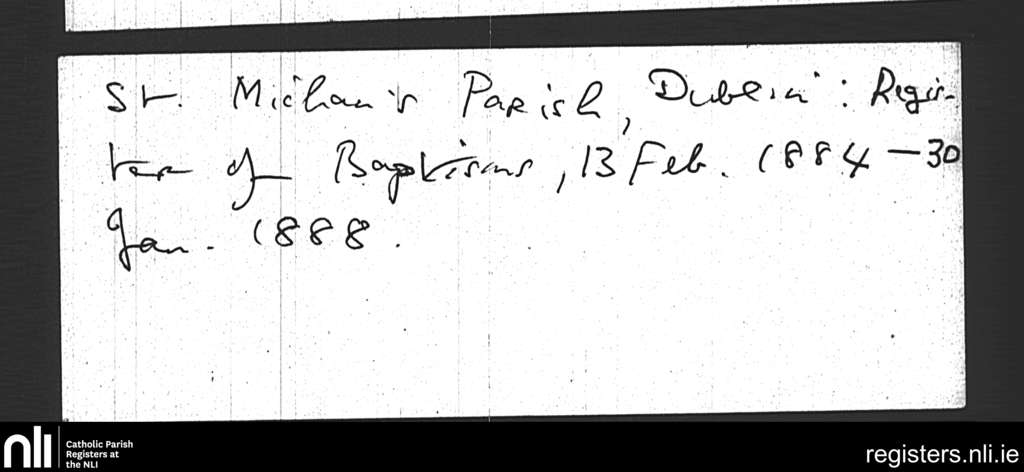 St. Michan's Parish, Dublin: Regis-
ter of Baptisms, 13 Feb. 1884 - 30
Jan. 1888.
nli Catholic Parish
Registers at
the NLI
registers.nli.ie